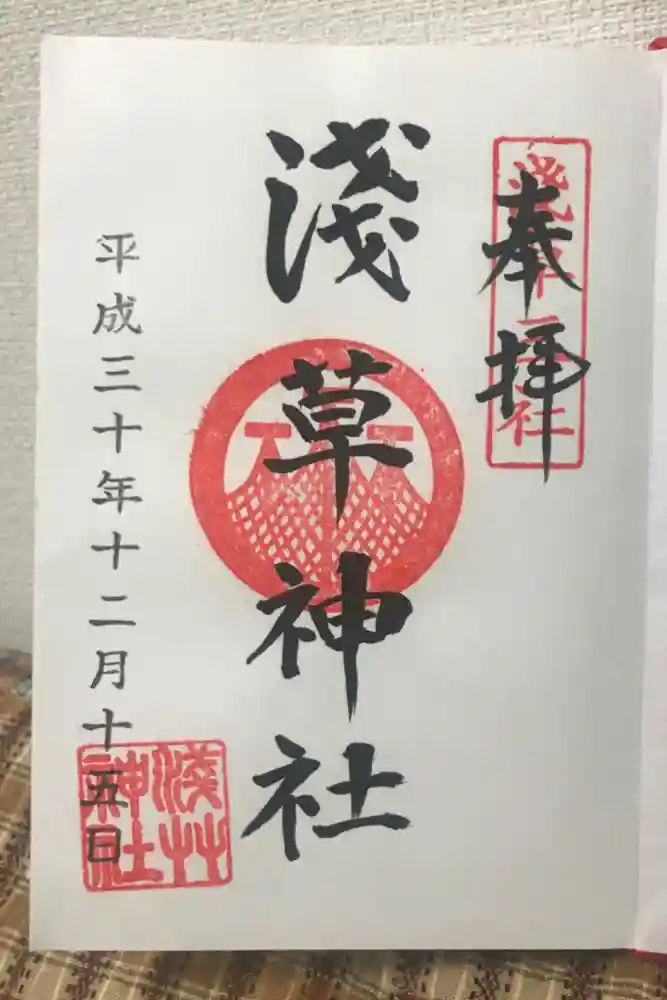 奉拝
浅草三社
淺草神社
平成三十年十二月十五日
淺艸
神社